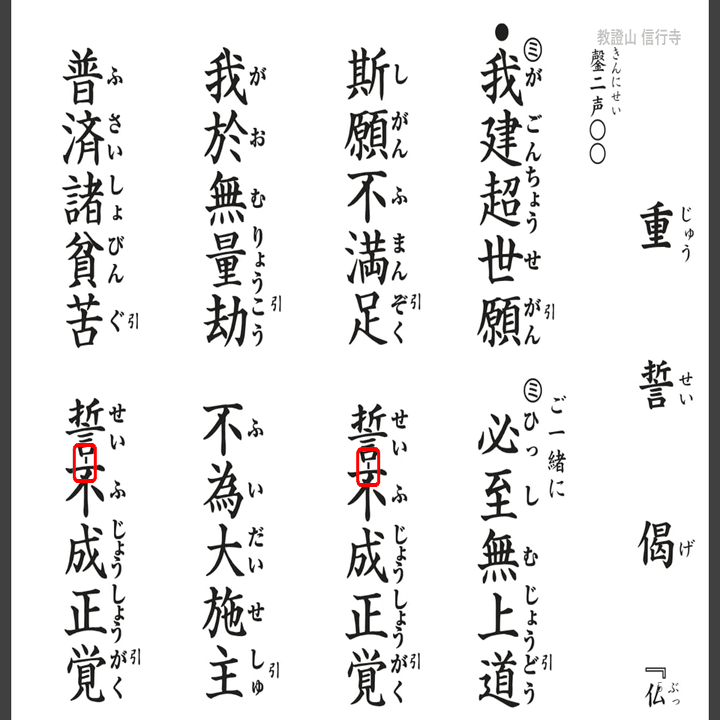 教證山 信行寺
重誓偈
じゅうせいげ
『仏
ぶっ
鏧二声〇〇
きんにせい
● ㋯我建超世願
がごんちょうせがん引
ご一緒に
㋯必至無上道
ひっしむじょうどう引
斯願不満足
しがんふまんぞく引
誓不成正覚
せいふじょうしょうがく引
我於無量劫
がおむりょうこう引
不為大施主
ふいだいせしゅ引
普済諸貧苦
ふさいしょびんぐ引
誓不成正覚
せいふじょうしょうがく引